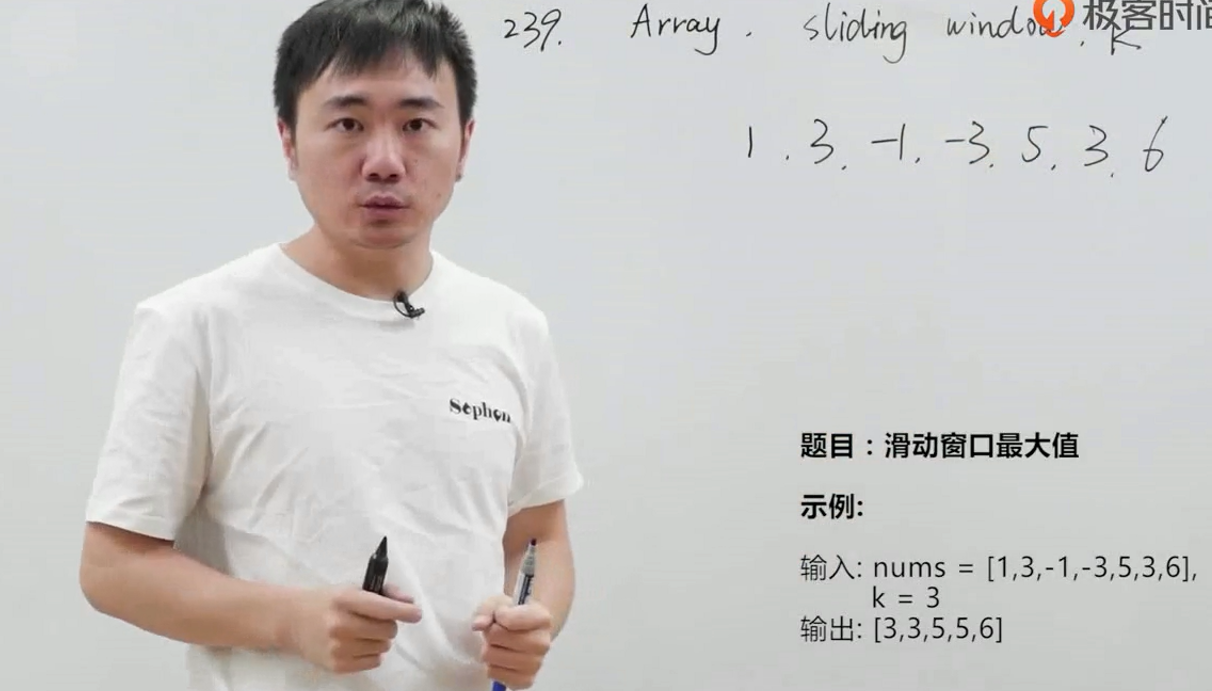 239. Array. sliding window. K
极客时间
1. 3. -1. -3. 5. 3. 6
Sephon
题目：滑动窗口最大值
示例:
输入: nums = [1,3,-1,-3,5,3,6],
k = 3
输出: [3,3,5,5,6]